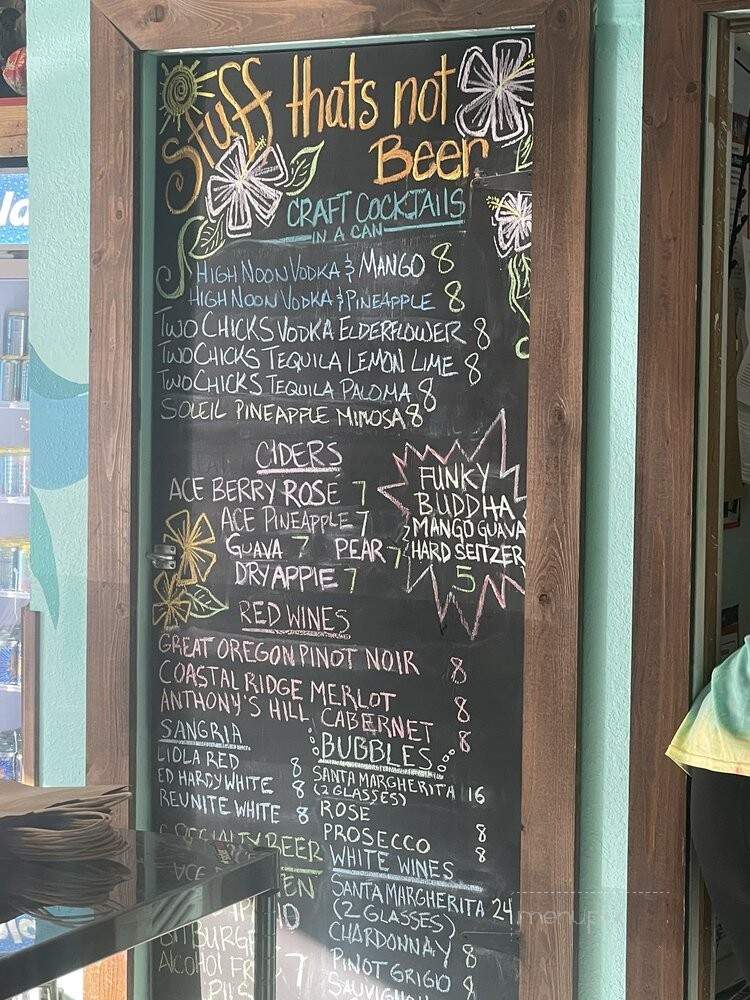 Stuff thats not
Beer
CRAFT COCKTAILS
IN A CAN
HIGH NOON VODKA & MANGO 8
HIGH NOON VODKA & PINEAPPLE 8
TWO CHICKS VODKA ELDERFLOWER 8
TWO CHICKS TEQUILA LEMON LIME 8
TWO CHICKS TEQUILA PALOMA 8
SOLEIL PINEAPPLE MIMOSA 8
CIDERS
ACE BERRY ROSE 7
ACE PINEAPPLE 7
GUAVA 7 PEAR 7
DRY APPLE 7
FUNKY
BUDDHA
MANGO GUAVA
HARD SEITZER
5
RED WINES
GREAT OREGON PINOT NOIR 8
COASTAL RIDGE MERLOT 8
ANTHONY'S HILL CABERNET 8
SANGRIA
LIOLA RED 8
ED HARDY WHITE 8
REUNITE WHITE 8
SPECIALTY BEER
ACE
EN
10
BITBURGE
ALCOHOL FRE 7
PILS
BUBBLES
SANTA MARGHERITA 16
(2 GLASSES)
ROSE 8
PROSECCO 8
WHITE WINES
SANTA MARGHERITA 24
(2 GLASSES)
CHARDONNAY 8
PINOT GRIGIO 8
SAUVIGN
menu